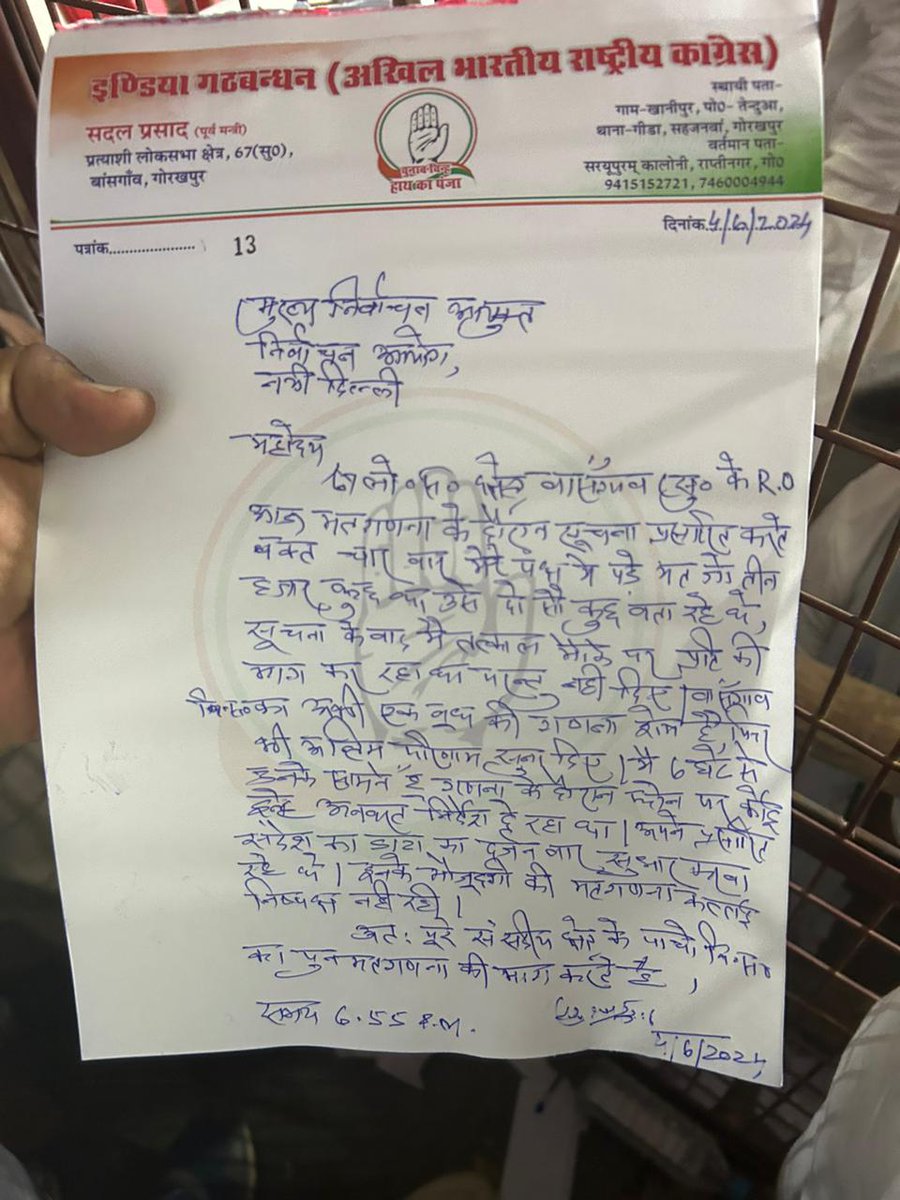 इण्डिया गठबन्धन (अखिल भारतीय राष्ट्रीय कांग्रेस)
सदल प्रसाद (पूर्व मन्त्री)
प्रत्याशी लोकसभा क्षेत्र, 67(सु0),
बांसगाँव, गोरखपुर
चुनाव चिन्ह
हाथ का पंजा
स्थायी पता-
गाम-खानीपुर, पो0- तेन्दुआ,
थाना-गीडा, सहजनवां, गोरखपुर
वर्तमान पता-
सरयूपुरम् कालोनी, राप्तीनगर, गो0
9415152721, 7460004944
पत्रांक..................... 13
दिनांक.4/6/2024
मुख्य निर्वाचन आयुक्त
निर्वाचन आयोग,
नयी दिल्ली
महोदय
लो०स० क्षेत्र बांसगांव सु० के R.O
आज मतगणना के दौरान सूचना प्रसारित करते
वक्त चार बार मेरे पक्ष मे पड़े मत जो तीन
हजार कुछ था उसे दो सौ कुछ बता रहे थे,
सूचना के बाद मै तत्काल मौके पर प्रति की
माग कर रहा था परन्तु नही दिए। बांसगांव
वि०स० का अभी एक बूथ की गणना शेष है, फिर
भी अन्तिम परिणाम सुना दिए। मै 6 घंटे से
इनके सामने हूँ गणना के दौरान फोन पर कोई
इन्हे अनवरत निर्देश दे रहा था। अपने प्रसारित
संदेश का डाटा का दर्जन बार सुधार करवा
रहे थे। इनके मौजूदगी की मतगणना कत्तई
निष्पक्ष नही रही।
अतः पूरे संसदीय क्षेत्र के पाचो वि०स०
का पुनः मतगणना की माग करते है,
समय 6.55 P.M.
4/6/2024